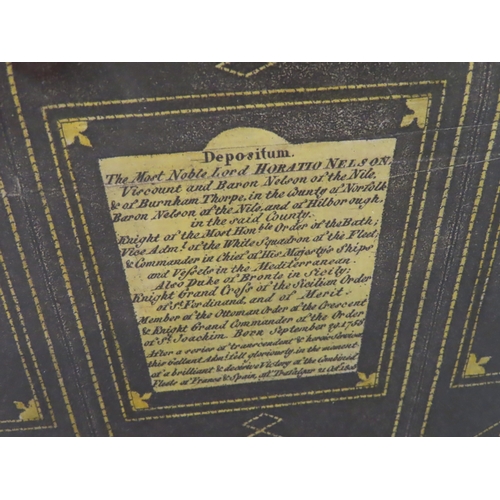 Depositum.
The Most Noble Lord HORATIO NELSON,
Viscount and Baron Nelson of the Nile,
& of Burnham Thorpe, in the County of Norfolk
Baron Nelson of the Nile, and of Hilborough,
in the said County.
Knight of the Most Honble Order of the Bath;
Vice Adml. of the White Squadron of the Fleet,
& Commander in Chief of His Majesty's Ships
and Vessels in the Mediterranean.
Also Duke of Bronte in Sicily;
Knight Grand Cross of the Sicilian Order
of St. Ferdinand, and of Merit.
Member of the Ottoman Order of the Crescent
& Knight Grand Commander of the Order
of St. Joachim. Born September 29 1758
After a series of transcendent & heroic Services
this Gallant Adml. fell gloriously, in the moment
of a brilliant & decisive Victory of the Combined
Fleets of France & Spain, off Trafalgar 21 Oct. 1805